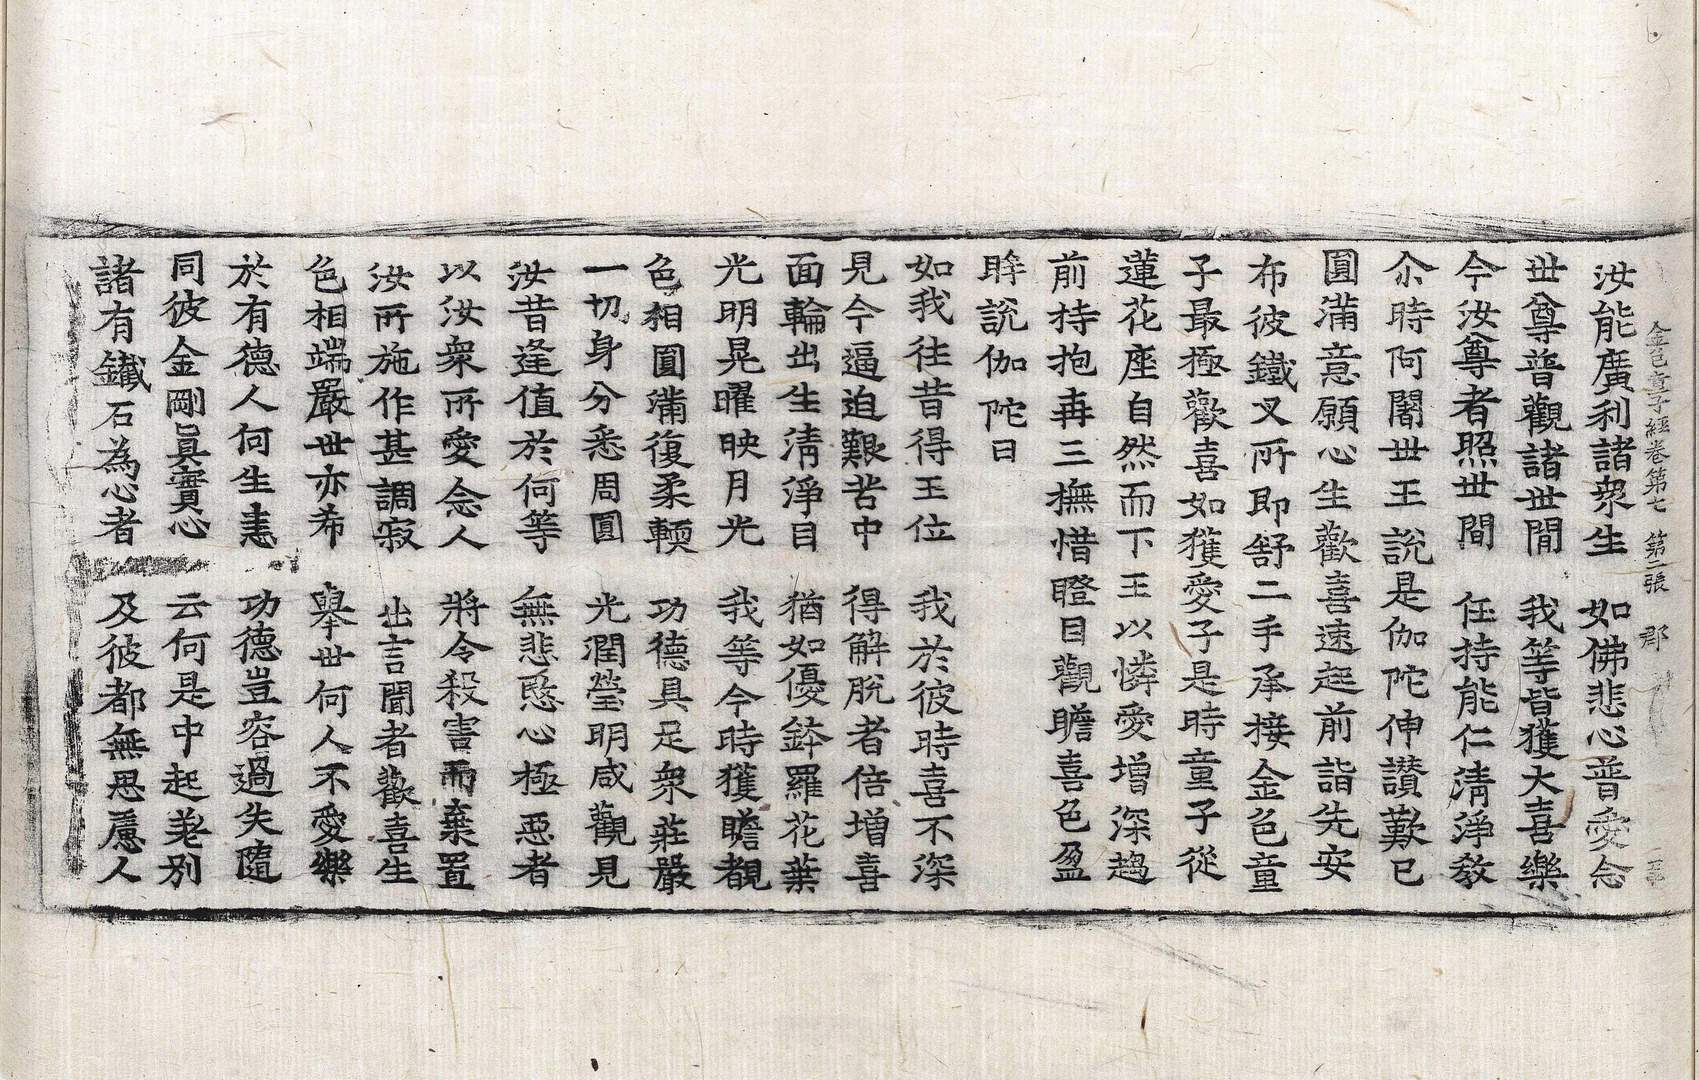 金色童子經卷第七 第二張 郡
汝能廣利諸衆生 如佛悲心普愛念
世尊普觀諸世間 我等皆獲大喜樂
今汝尊者照世間 任持能仁清淨教
尒時阿闍世王說是伽陀伸讃歎已
圓滿意願心生歡喜速起前詣先安
布彼鐵叉所即舒二手承接金色童
子最極歡喜如獲愛子是時童子從
蓮花座自然而下王以憐愛增深趨
前持抱再三撫惜瞪目觀瞻喜色盈
眸說伽陀曰
如我往昔得王位 我於彼時喜不深
見今逼迫艱苦中 得解脫者倍增喜
面輪出生清淨目 猶如優鉢羅花葉
光明晃曜映月光 我等今時獲瞻覩
色相圓滿復柔輭 功德具足衆莊嚴
一切身分悉周圓 光潤瑩明咸觀見
汝昔逢值於何等 無悲愍心極惡者
以汝衆所愛念人 將令殺害而棄置
汝所施作甚調寂 出言聞者歡喜生
色相端嚴世亦希 舉世何人不愛樂
於有德人何生恚 功德豈容過失隨
同彼金剛眞實心 云何是中起差別
諸有鐵石為心者 及彼都無思慮人